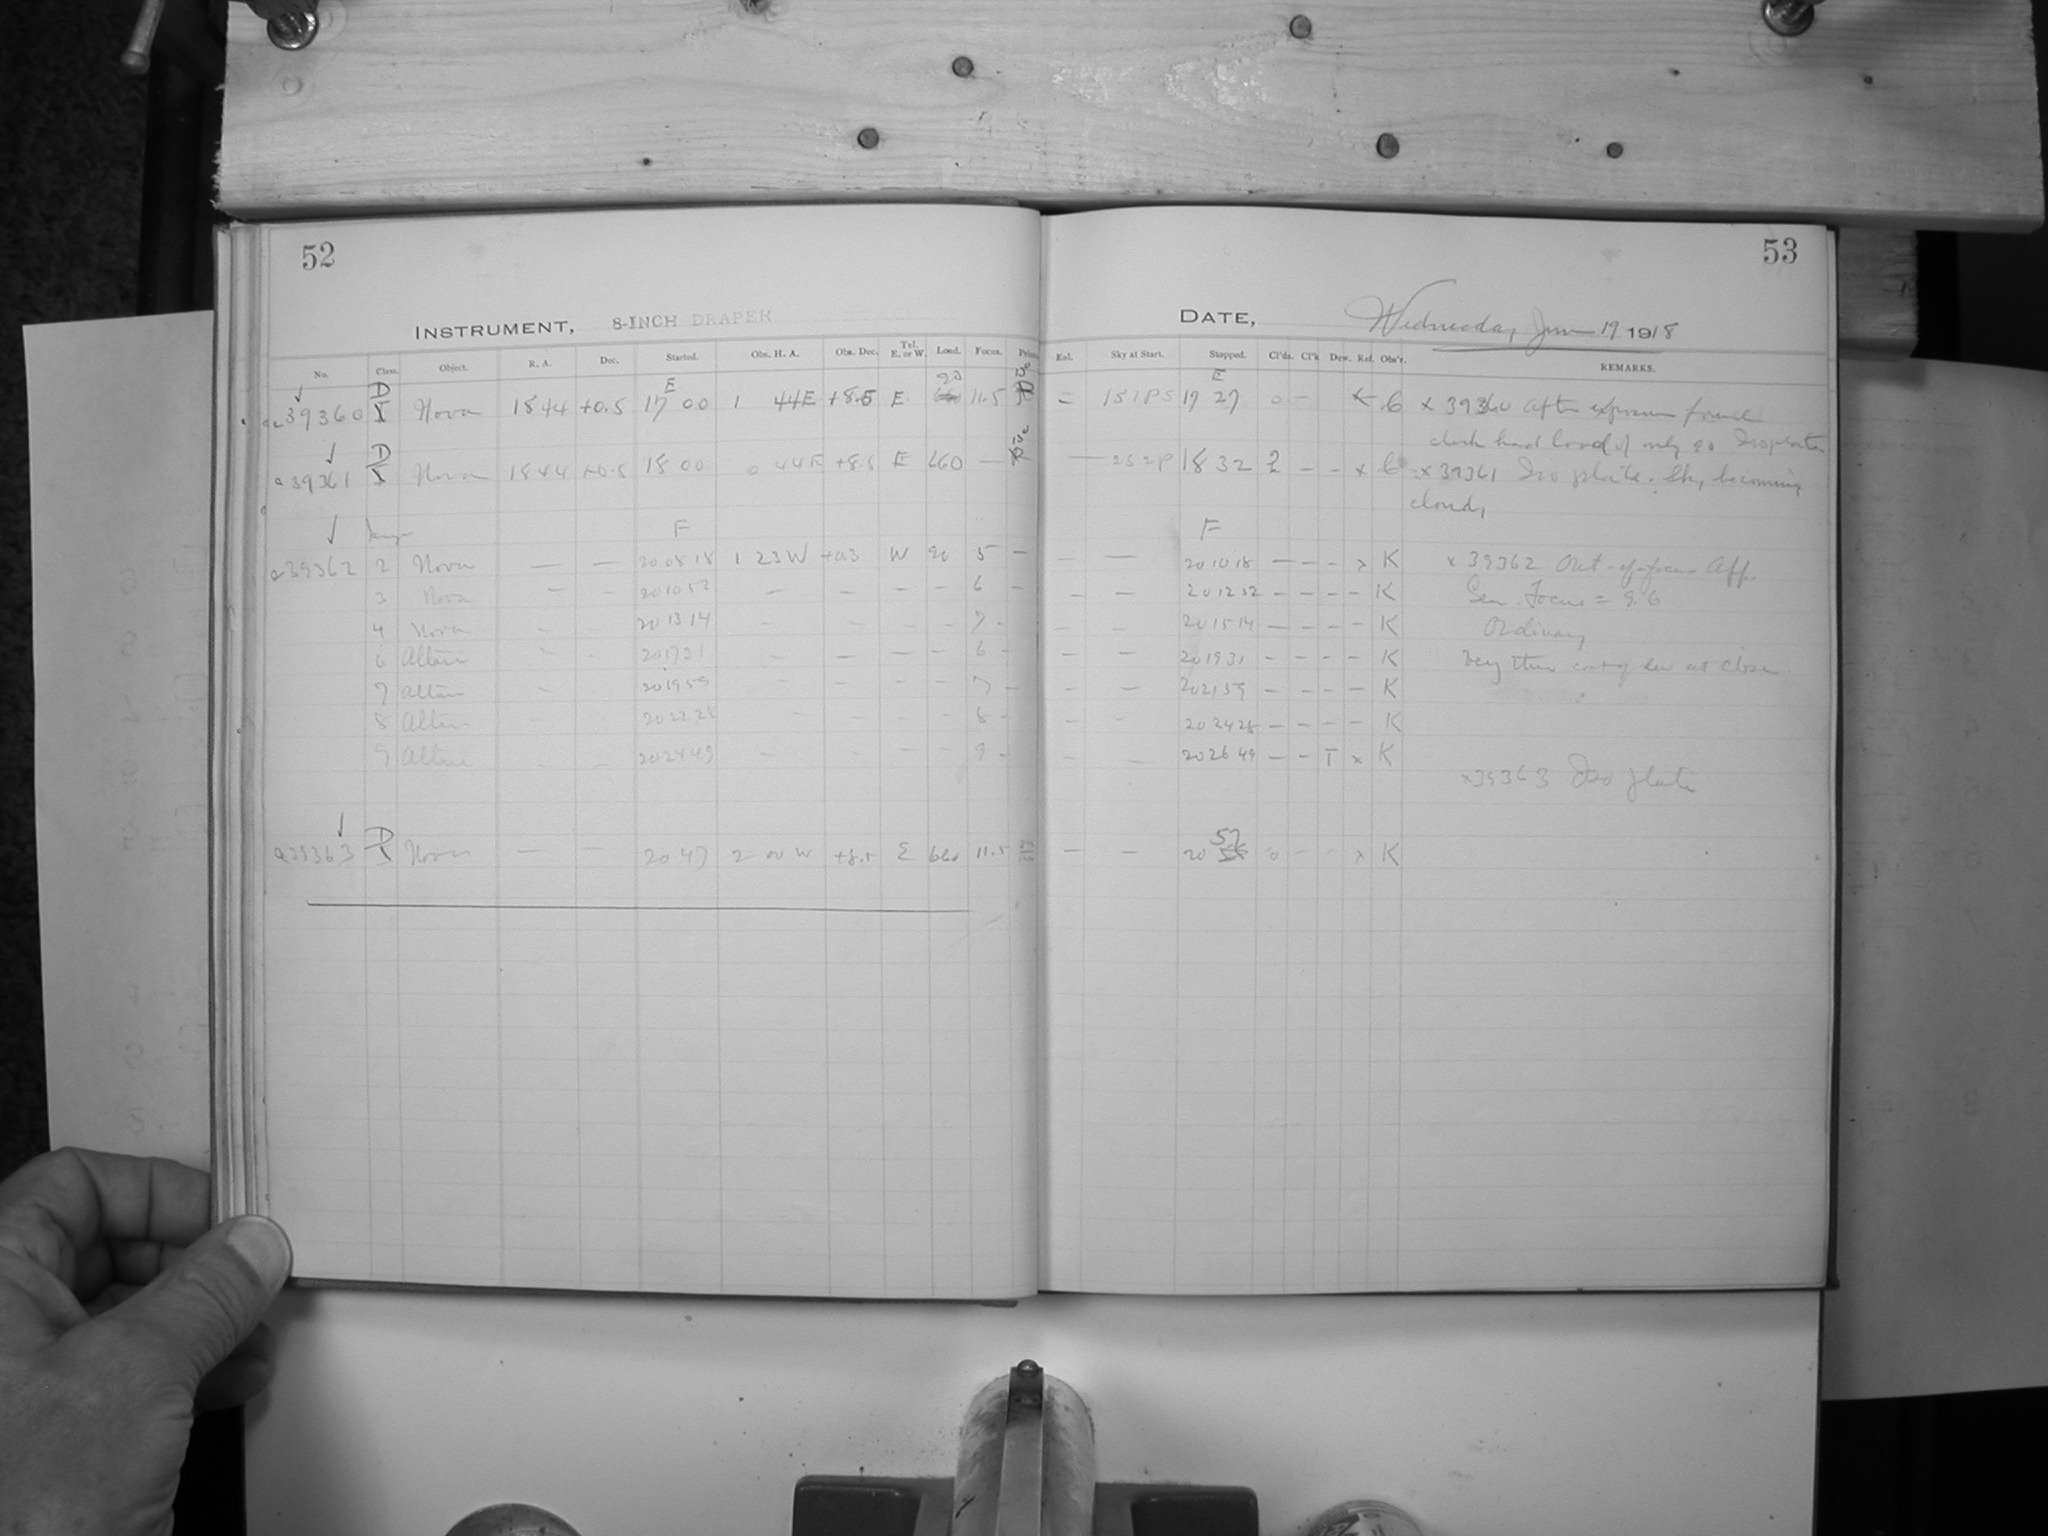 52
53
INSTRUMENT, 8-INCH DRAPER
DATE, Wednesday June 19 1918
No. Class. Object. R. A. Dec. Started. Obs. H. A. Obs. Dec. Tel. E. or W. Load. Focus.
Rel. Sky at Start. Stopped. Cl'ds. Cl'k Dew. Ref. Obs'r. REMARKS.
E 90 E
a 39360 D Nova 1844 +0.5 17 00 1 44E +8.5 E 11.5 = 151P5 17 27 0 - C x 39360 After exposure found
clock had load of only 90 Iso plate
a 39361 D Nova 1844 +0.5 18 00 0 44E +8.5 E 660 — — 252P 18 32 2 - - x C x 39361 Iso plate. Sky becoming
cloudy
F F
a 39362 2 Nova — — 20 08 18 1 23 W +0.3 W 90 5 — — — 20 10 18 — - - x K x 39362 Out-of-focus
3 Nova — — 20 10 52 — — — — 6 — — — 20 12 52 - - - - K Focus = 9.6
4 Nova — — 20 13 14 — — — — 7 - — — 20 15 14 — - - - K Ordinary
6 Altair — — 20 17 31 — — — — 6 - — — 20 19 31 - - - - K Very thin coat of dew at close.
7 Altair — — 20 19 59 — — — — 7 — — — 20 21 59 — - - - K
8 Altair — — 20 22 28 — — — — 8 - — — 20 24 28 — - - - K
9 Altair — — 20 24 49 — — — — 9 - — — 20 26 49 — - T x K
x 39363 Iso plate
57
a 39363 D Nova — — 20 47 2 00 W +8.5 E 660 11.5 — — 20 0 - - x K